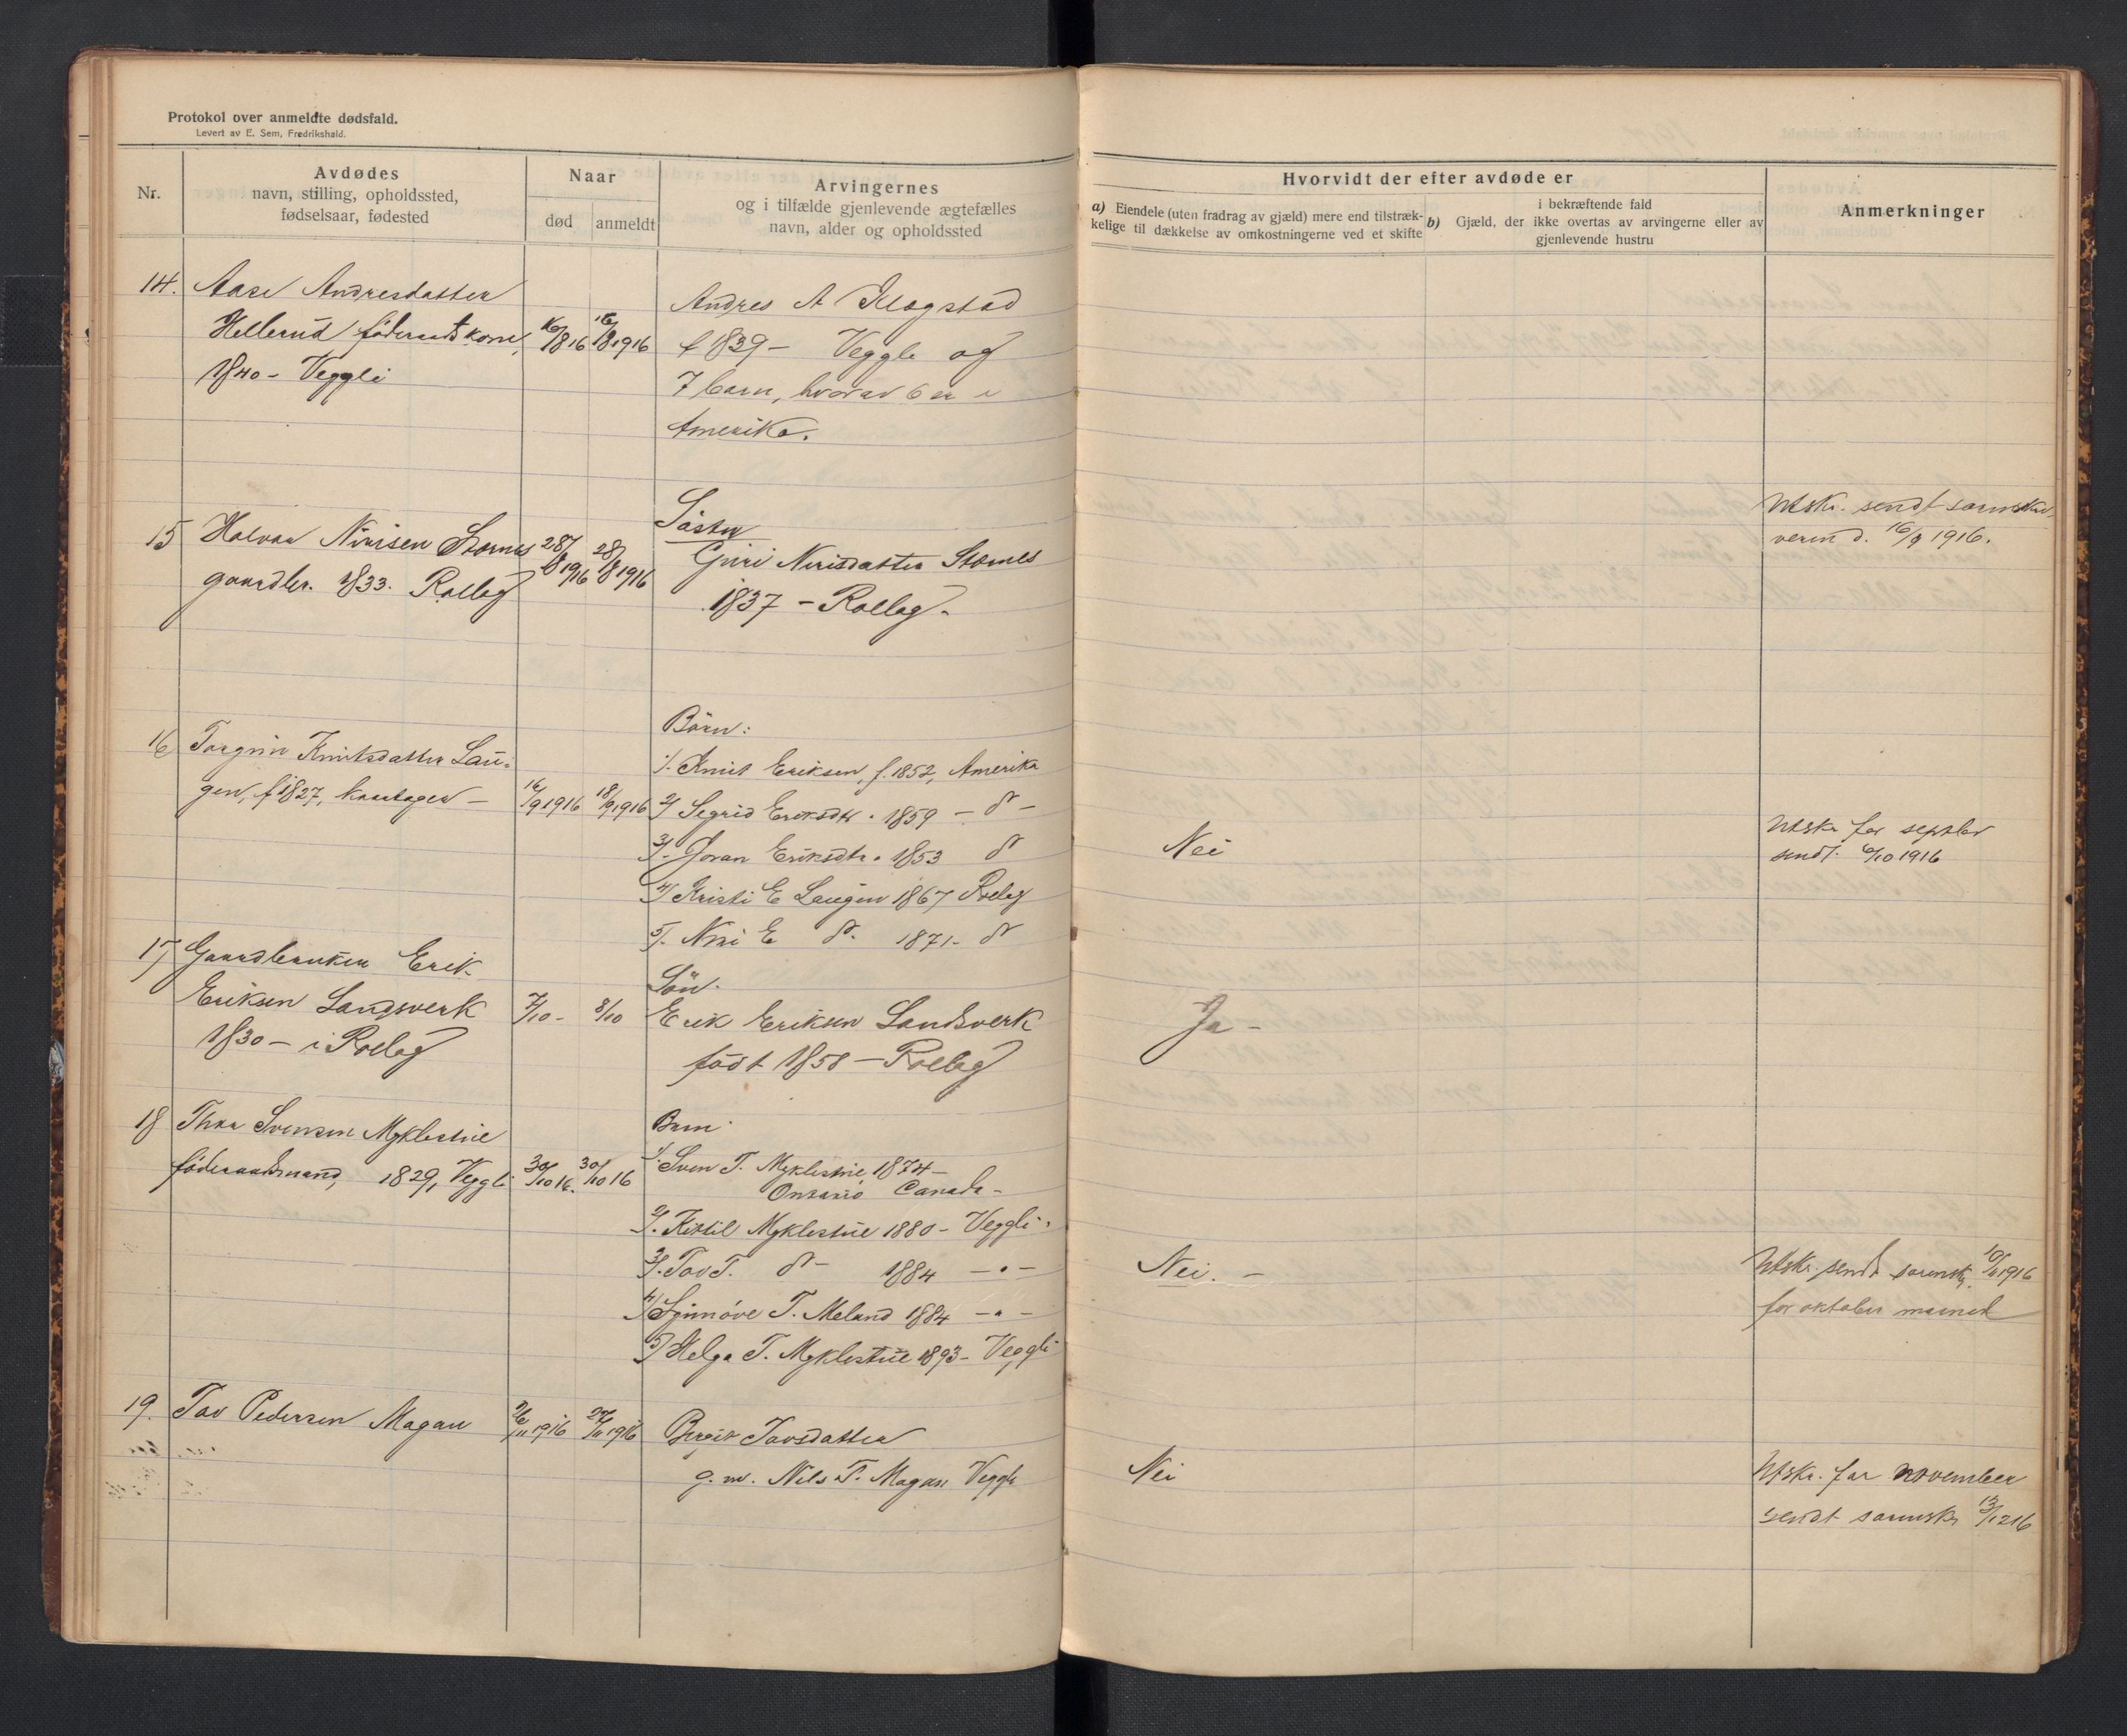 Protokol over anmeldte dødsfald.
Levert av E. Sem, Fredrikshald.
Nr.
Avdødes
navn, stilling, opholdssted,
fødselsaar, fødested
Naar
død
anmeldt
Arvingernes
og i tilfælde gjenlevende ægtefælles
navn, alder og opholdssted
Hvorvidt der efter avdøde er
a) Eiendele (uten fradrag av gjæld) mere end tilstræk-
kelige til dækkelse av omkostningerne ved et skifte
i bekræftende fald
b) Gjæld, der ikke overtas av arvingerne eller av
gjenlevende hustru
Anmerkninger
14. Aase Andresdatter
Hellerud föderaadskone, 16/8 16 16/8 1916
1840 - Veggli
Andres A
f 1839 - Veggli og
7 barn, hvorav 6 er i
Amerika.
15 Halvor Nirisen Stornes 28/8 1916 28/8 1916
gaardbr. 1833. Rollag
Söster
Guri Nirisdatter Stornes
1837 - Rollag.
Utskr. sendt sorenskri-
veren d. 16/9 1916.
16 Torgrin Knutsdatter Lau-
gen, f 1827, - 16/9 1916 18/9 1916
Börn:
1/. Knut Eriksen, f. 1852, Amerika
2/ Segrid Eriksdtr. 1859 - do -
3/. Joran Eriksdtr. 1853 do
4/ Kristi E Laugen 1867 Rollag
5/. Niri E do. 1871 - do
Nei
Utskr for septbr
sendt. 6/10 1916
17 Gaardbruker Erik
Eriksen Landsverk 7/10 - 8/10
1830 - i Rollag
Sön.
Erik Eriksen Landsverk
födt 1858 - Rollag
Ja -
18 Thor Svensen Myklestue
föderaadsmand, 1829, Veggli 30/10 16. 30/10 16
Barn.
1/. Sven T. Myklestue, 1874 -
Ontario Canada -
2/. Kittil Myklestue 1880 - Veggli.
3/. Tov T. do - 1884 - " -
4/ Synnöve T. Meland 1884 - " -
5/ Helga T. Myklestue 1893 - Veggli
Nei. -
Utskr. sendt sorenskr. 10/11 1916
for oktober maaned
19. Tov Pedersen Magan 26/11 1916 27/11 1916
Bergit Tovsdatter
g. m. Nils T. Magan Veggli
Nei
Utskr. for november
sendt sorenskr 13/12 16